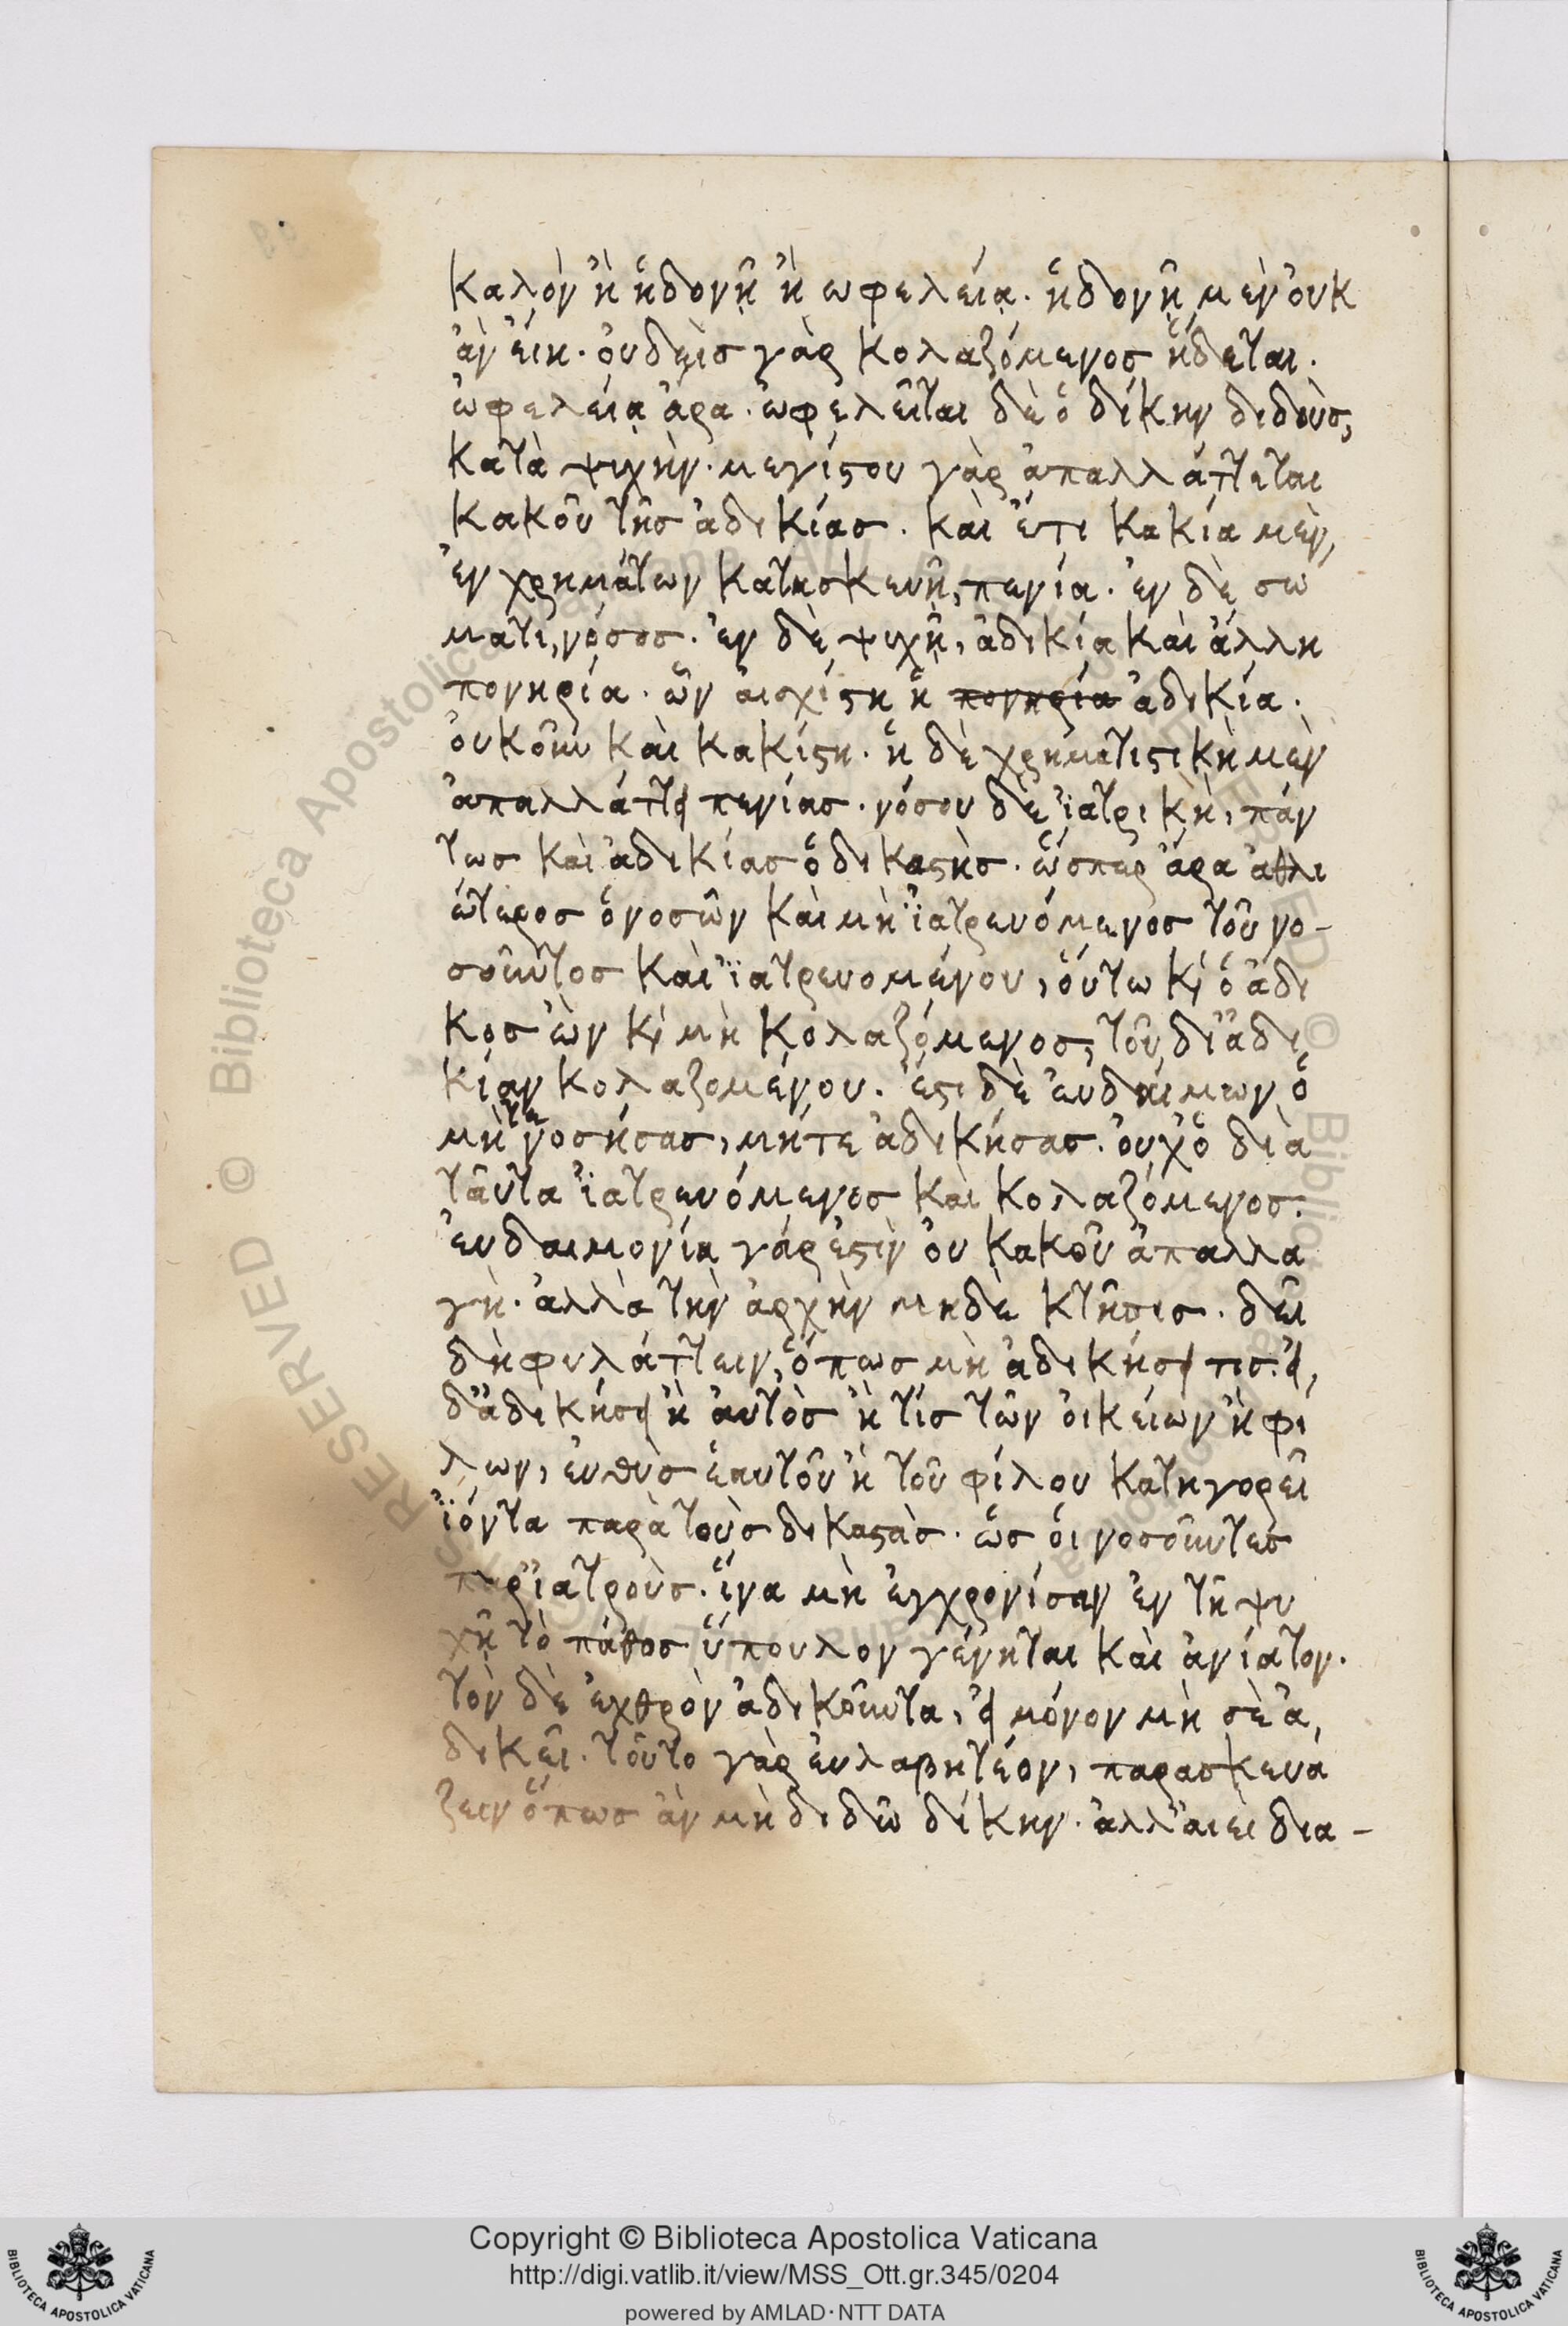 καλὸν ἢ ἡδονῇ ἢ ωφελείᾳ. ἡδονῇ μὲν ὀυκ
ἀν ἔιη. ὀυδεὶσ γὰρ κολαζόμενοσ ἥδεται.
ὠφελείᾳ ἄρα. ὠφελεῖται δὲ ὁ δίκην διδοὺσ,
κατὰ ψυχὴν. μεγίϛου γὰρ ἀπαλλάττεται
κακοῦ τῆσ ἀδικίασ. καὶ ἔτι κακία μὲν,
ἐν χρημάτων κατασκευῇ, πενία. ἐν δὲ σω
ματι, νόσοσ. ἐν δὲ ψυχῇ, ἀδικία καὶ ἄλλη
πονηρία. ὧν ἀισχίϛη ἡ πονηρία ἀδικία.
ὀυκοῦν καὶ κακίϛη. ἡ δὲ χρηματιϛικὴ μὲν
ἀπαλλάττει πενίασ. νόσου δὲ ἰατρικὴ, πάν
τωσ καὶ ἀδικίασ ὁ δικαϛὴσ. ὥσπερ ἄρα ἀθλι
ώτεροσ ὁ νοσῶν καὶ μὴ ἰατρευόμενοσ τοῦ νο-
σοῦντοσ καὶ ἰατρευομένου, ὅυτω κỳ ὁ ἄδι
κοσ ὢν κỳ μὴ κολαζόμενοσ, τοῦ δι' ἀδι
κίαν κολαζομένου. ἔϛι δὲ ἐυδαίμων ὁ
μήτε νοσήσασ, μήτε ἀδικήσασ. ὀυχ' ὁ διὰ
ταῦτα ἰατρευόμενοσ καὶ κολαζόμενοσ.
ἐυδαιμονία γάρ ἐϛιν ὀυ κακοῦ ἀπαλλα
γὴ. ἀλλὰ τὴν ἀρχὴν μηδὲ κτῆσισ. δεῖ
δὴ φυλάττειν, ὅπωσ μὴ ἀδικήσει τισ. εἰ,
δ' ἀδικήσει ἢ ἀυτὸσ ἢ τίσ τῶν ὀικείων ἢ φί
λων, ἐυθὺσ ἑαυτοῦ ἢ τοῦ φίλου κατηγορεῖ
ἰόντα παρὰ τοὺσ δικαϛὰσ. ὡσ ὁι νοσοῦντεσ
παρ' ἰατροὺσ. ἵνα μὴ ἐγχρονίσαν ἐν τῇ ψυ
χῇ τὸ πάθοσ ὕπουλον γένηται καὶ ἀνίατον.
τὸν δὲ ἐχθρὸν ἀδικοῦντα, εἰ μόνον μὴ σὲ ἀ,
δικεῖ. τοῦτο γὰρ ἐυλαβητέον, παρασκευά
ζειν ὅπωσ ἀν μὴ διδῶ δίκην. ἀλλ' ἀιεὶ δια-
Copyright © Biblioteca Apostolica Vaticana
http://digi.vatlib.it/view/MSS_Ott.gr.345/0204
powered by AMLAD·NTT DATA